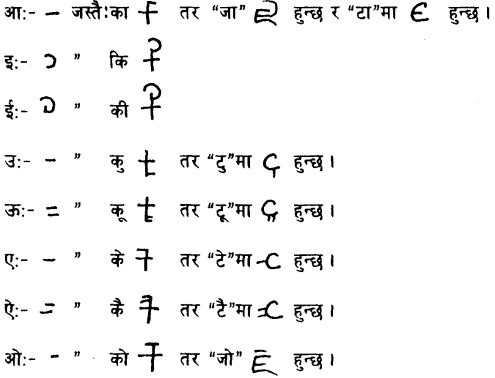 आः- – जस्तैःका तर “जा” हुन्छ र “टा”मा हुन्छ ।
इः- ” कि
ईः- ” की
उः- – ” कु तर “टु”मा हुन्छ ।
ऊः- = ” कू तर “टू”मा हुन्छ ।
एः- – ” के तर “टे”मा हुन्छ ।
ऐः- = ” कै तर “टै”मा हुन्छ ।
ओः- - ” को तर “जो” हुन्छ ।